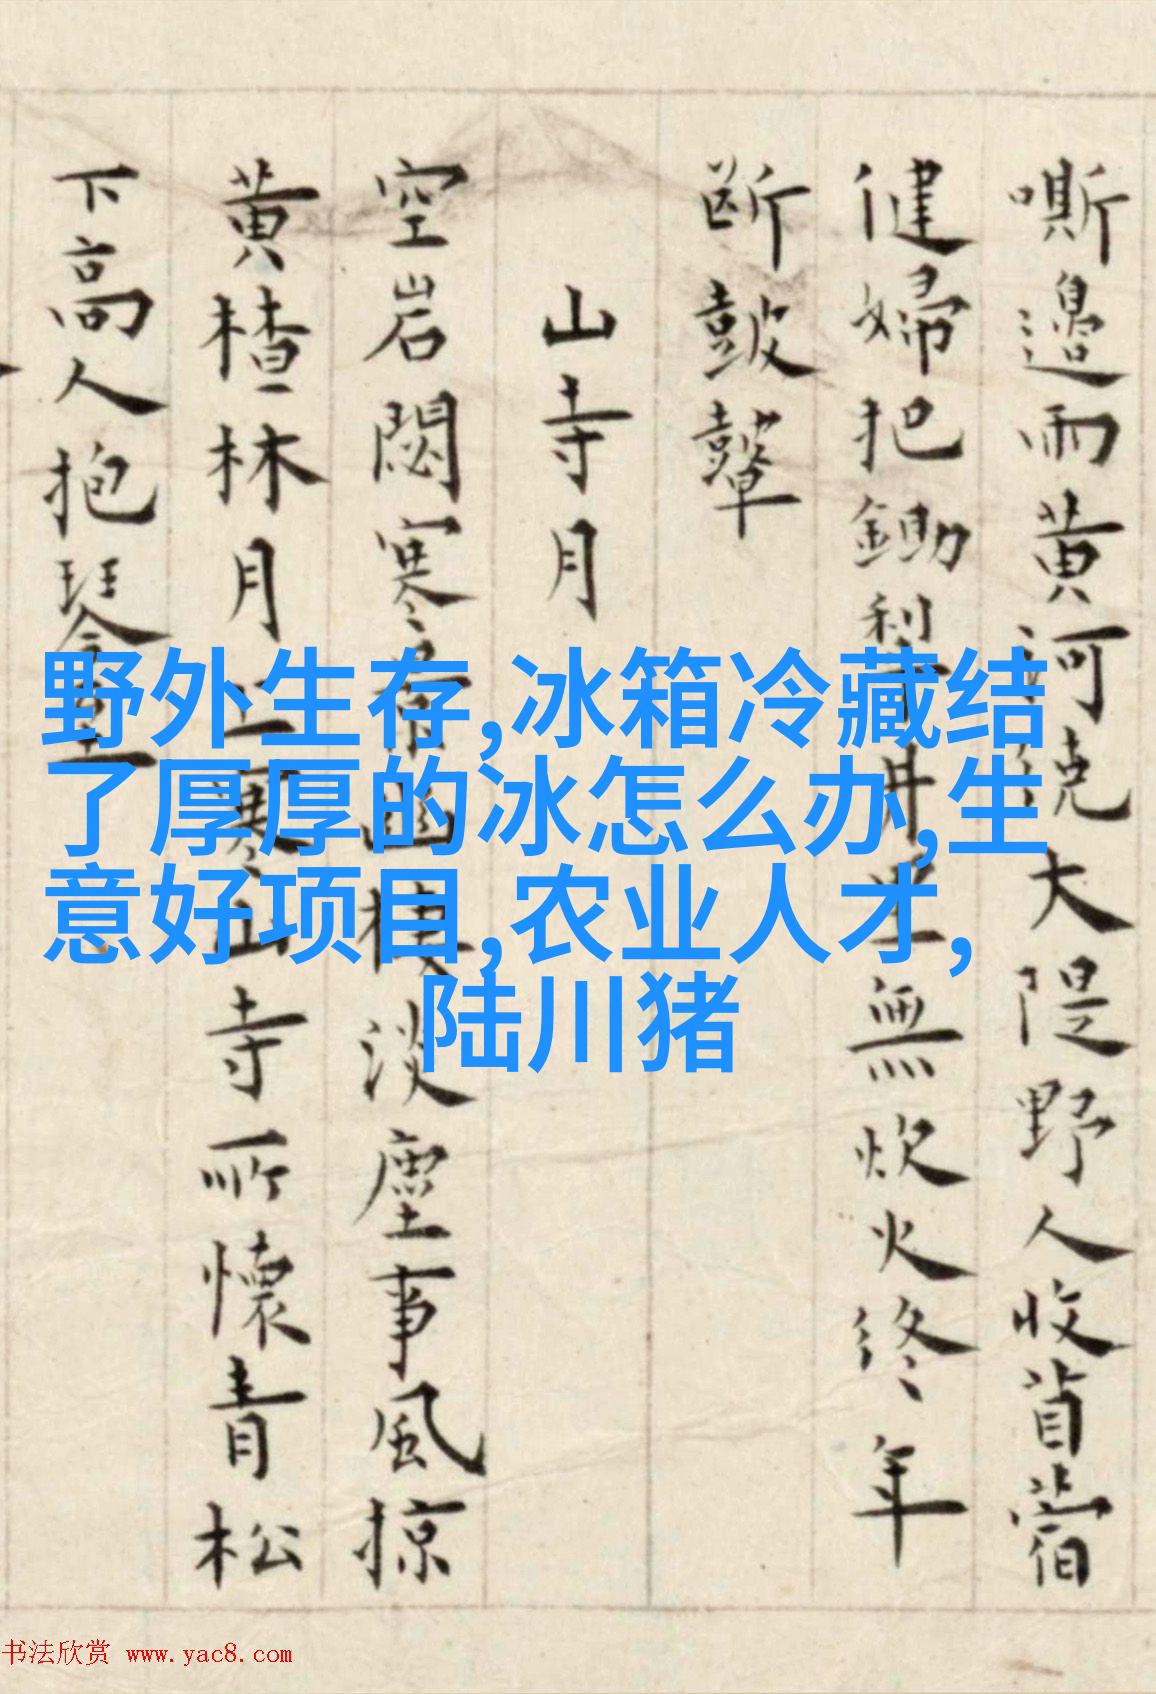 嘶邊雨黄河兗大隄野人收苜蓿
健婦把鋤犁井無炊火終年
断鼓鼙
山寺月
空岩閟寒淡塵事風掠
黄楂林月上寒山寺所懷青松
下高人抱琴至
野外生存,冰箱冷藏结
了厚厚的冰怎么办,生
意好项目,农业人才,
陆川猪
书法欣赏 www.yac8.com